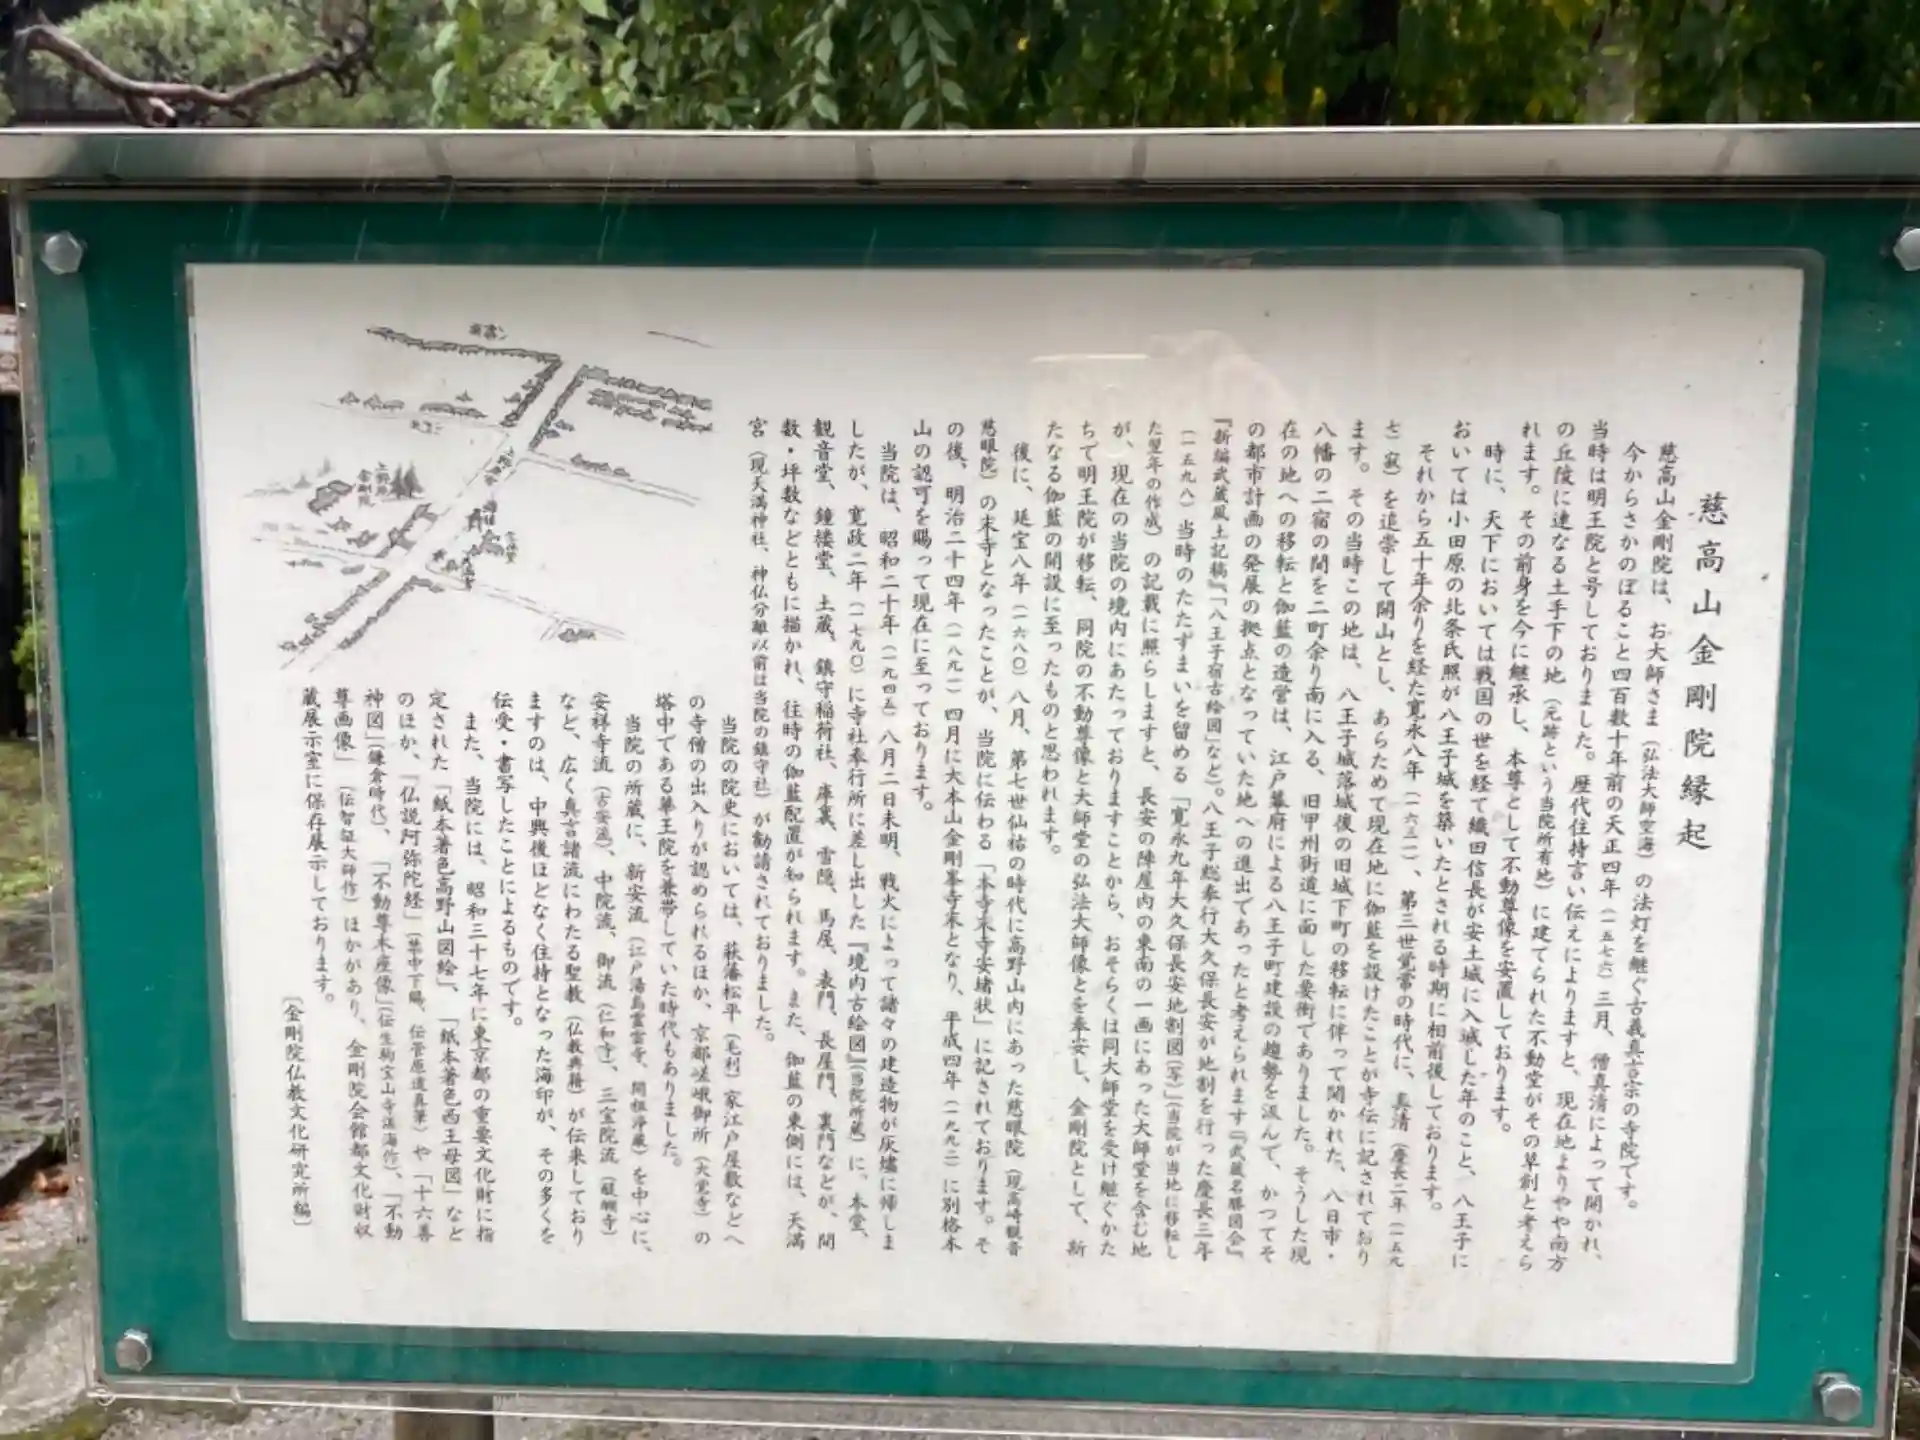 慈高山金剛院縁起
慈高山金剛院は、お大師さま（弘法大師空海）の法灯を継ぐ古義真言宗の寺院です。
今からさかのぼること四百数十年前の天正四年（一五七六）三月、僧真清によって開かれ、
当時は明王院と号しておりました。歴代住持言い伝えによりますと、現在地よりやや南方
の丘陵に連なる土手下の地（元跡という当院所有地）に建てられた不動堂がその草創と考えら
れます。その前身を今に継承し、本尊として不動尊像を安置しております。
時に、天下においては戦国の世を経て織田信長が安土城に入城した年のこと、八王子に
おいては小田原の北条氏照が八王子城を築いたとされる時期に相前後しております。
それから五十年余りを経た寛永八年（一六三一）、第三世覚常の時代に、真清（慶長二年（一五九
七）寂）を追崇して開山とし、あらためて現在地に伽藍を設けたことが寺伝に記されており
ます。その当時この地は、八王子城落城後の旧城下町の移転に伴って開かれた、八日市・
八幡の二宿の間を二町余り南に入る、旧甲州街道に面した要衝でありました。そうした現
在の地への移転と伽藍の造営は、江戸幕府による八王子町建設の趨勢を汲んで、かつてそ
の都市計画の発展の拠点となっていた地への進出であったと考えられます『武蔵名勝図会』、
『新編武蔵風土記稿』、「八王子宿古絵図」など）。八王子総奉行大久保長安が地割を行った慶長三年
（一五九八）当時のたたずまいを留める「寛永九年大久保長安地割図（写）」（当院が当地に移転し
た翌年の作成）の記載に照らしますと、長安の陣屋内の東南の一画にあった大師堂を含む地
が、現在の当院の境内にあたっておりますことから、おそらくは同大師堂を受け継ぐかた
ちで明王院が移転、同院の不動尊像と大師堂の弘法大師像とを奉安し、金剛院として、新
たなる伽藍の開設に至ったものと思われます。
後に、延宝八年（一六八〇）八月、第七世仙祐の時代に高野山内にあった慈眼院（現高崎観音
慈眼院）の末寺となったことが、当院に伝わる「本寺末寺安堵状」に記されております。そ
の後、明治二十四年（一八九一）四月に大本山金剛峯寺末となり、平成四年（一九九二）に別格本
山の認可を賜って現在に至っております。
当院は、昭和二十年（一九四五）八月二日未明、戦火によって諸々の建造物が灰燼に帰しま
したが、寛政二年（一七九〇）に寺社奉行所に差し出した『境内古絵図』（当院所蔵）に、本堂、
観音堂、鐘楼堂、土蔵、鎮守稲荷社、庫裏、雪隠、馬屋、表門、長屋門、裏門などが、間
数・坪数などともに描かれ、往時の伽藍配置が知られます。また、伽藍の東側には、天満
宮（現天満神社、神仏分離以前は当院の鎮守社）が勧請されておりました。
当院の院史においては、萩藩松平（毛利）家江戸屋敷などへ
の寺僧の出入りが認められるほか、京都嵯峨御所（大覚寺）の
塔中である華王院を兼帯していた時代もありました。
当院の所蔵に、新安流（江戸湯島霊雲寺、開祖浄厳）を中心に、
安祥寺流（古安流）、中院流、御流（仁和寺）、三宝院流（醍醐寺）
など、広く真言諸流にわたる聖教（仏教典籍）が伝来しており
ますのは、中興後ほどなく住持となった海印が、その多くを
伝受・書写したことによるものです。
また、当院には、昭和三十七年に東京都の重要文化財に指
定された「紙本著色高野山図絵」、「紙本著色西王母図」など
のほか、『仏説阿弥陀経』（巻中下賜、伝菅原道真筆）や「十六善
神図」（鎌倉時代）、「不動尊木座像」（伝生駒宝山寺湛海作）、「不動
尊画像」（伝智証大師作）ほかがあり、金剛院会館都文化財収
蔵展示室に保存展示しております。
〔金剛院仏教文化研究所編〕
上野原
金剛院
天満宮